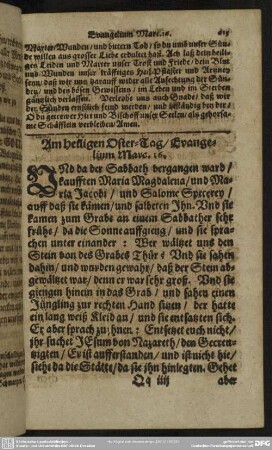 Evangelium Marc. 16. 615
Marter/Wunden/ und bittern Tod/ so du umb unser Sün-
de willen aus grosser Liebe erduldet hast. Ach laß dein heili-
ges Leiden und Marter unser Trost und Friede/ dein Blut
und Wunden unser kräfftiges Heil-Pflaster und Artzney
seyn/ daß wir uns darauff wider alle Anfechtung der Sün-
den/ und des bösen Gewissens/ im Leben und im Sterben
gäntzlich verlassen. Verleihe uns auch Gnade/ daß wir
der Sünden ernstlich feind werden/ und beständig bey dir/
O du getreuer Hirt und Bischoff unser Seelen/ als gehorsa-
me Schäfflein verbleiben/Amen.
Am heiligen Oster-Tag/ Evange-
lium Marc. 16.
UNd da der Sabbath vergangen ward/
kaufften Maria Magdalena/ und Ma-
ria Jacobi/ und Salome Specerey/
auff daß sie kämen/ und salbeten Ihn. Vnd sie
kamen zum Grabe an einem Sabbather sehr
frühe/ da die Sonne auffgieng/ und sie spra-
chen unter einander: Wer wältzet uns den
Stein von des Grabes Thür? Vnd sie sahen
dahin/ und wurden gewahr/ daß der Stein ab-
gewältzet war/ denn er war sehr groß. Vnd sie
giengen hinein in das Grab/ und sahen einen
Jüngling zur rechten Hand sitzen/ der hatte
ein lang weiß Kleid an/ und sie entsatzten sich.
Er aber sprach zu ihnen: Entsetzet euch nicht/
ihr suchet JEsum von Nazareth/ den Gecreu-
tzigten/ Er ist aufferstanden/ und ist nicht hie/
siehe da die Stätte/ da sie ihn hinlegten. Gehet
Qq iiij aber